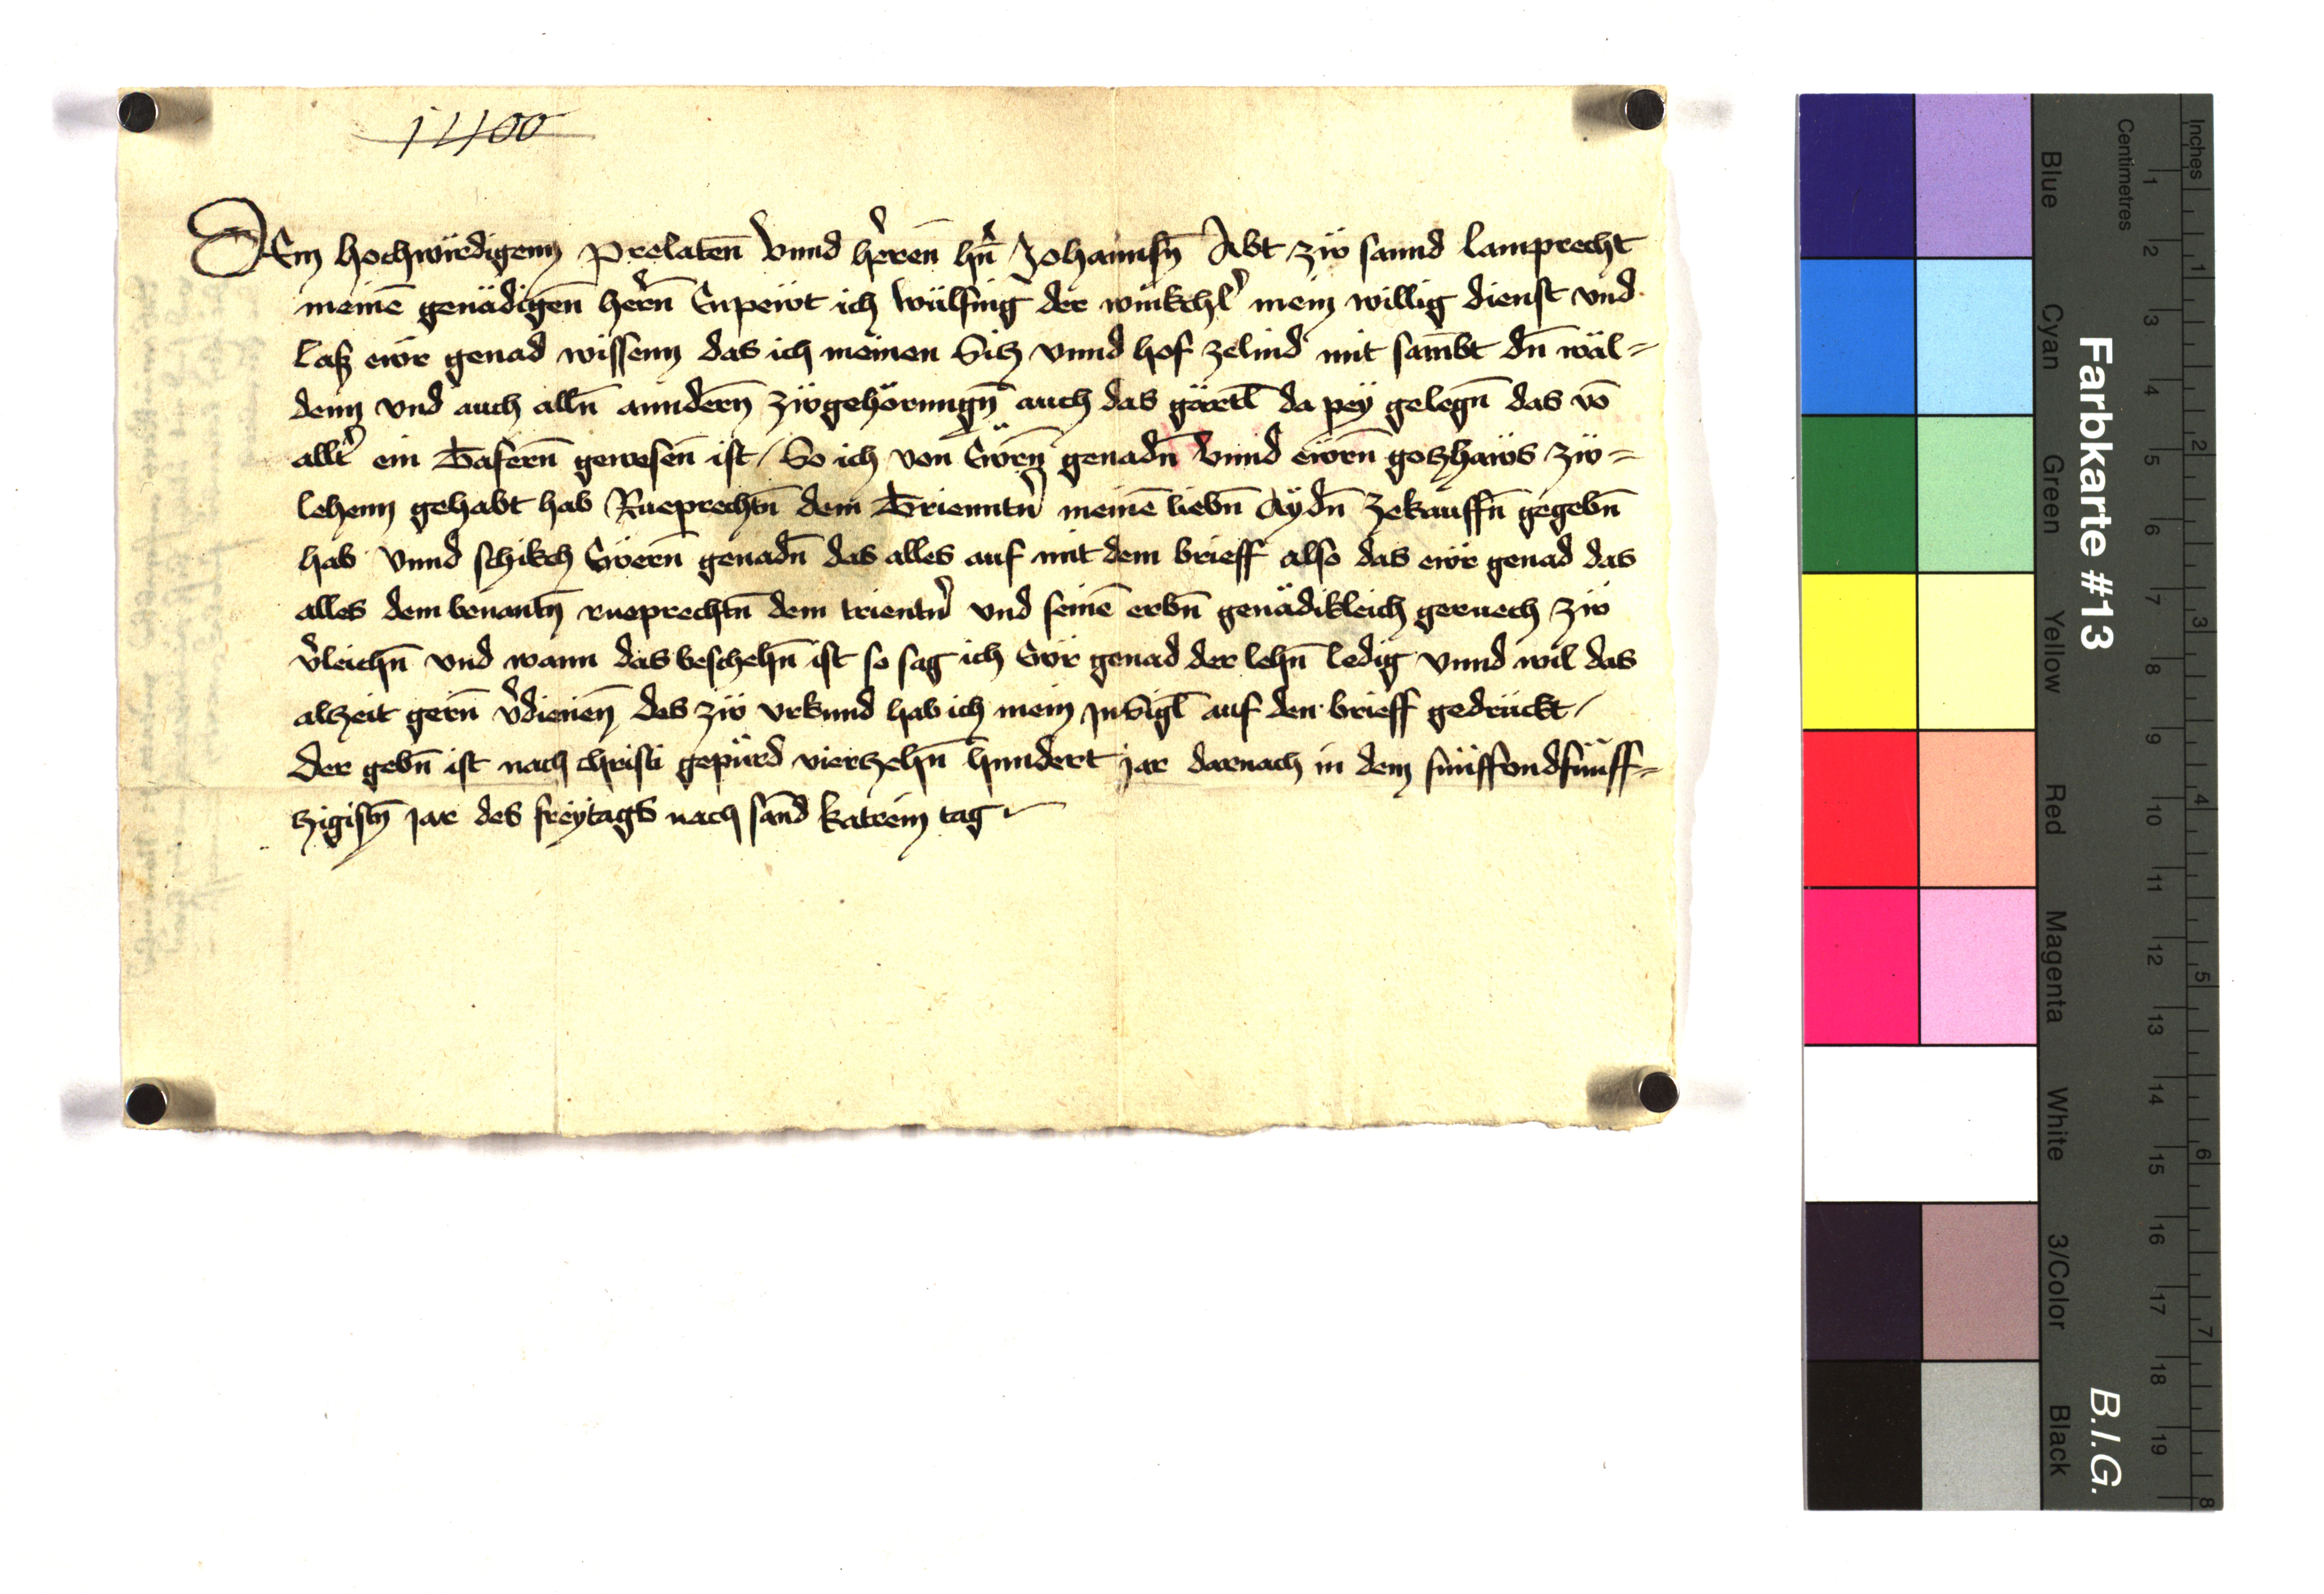 1400
DEm hochwirdigenn Prelaten̄ Vnnd heren̄ hn̄ Johannsn̄ Abt zw̋ sannd Lamprecht
meinē genädigen̄ hern̄ Enpewt ich Wülfing der winkchl' mein willig dienst vnd
Laß ewr genad wissenn das ich meinen Sitz vnnd hof zelind mit sambt dn̄ wäl=
denn vnd auch alln̄ anndern̄ zw̋gehörungn̄ auch das gärtl da pey̋ gelegn̄ das vō
allt' ein Tafern̄ gewesen̄ ist / So ich von Ewrn̄ genadn̄ Vnnd ewrn̄ gotzhaws zw̋=
lehenn gehabt hab Rueprechtn̄ dem Trienntn' meinē liebn̄ Aydn̄ zekauffn̄ gegebn̄
hab Vnnd schikch Ewern̄ genadn̄ das alles auf mit dem brieff also das ewr genad das
alles dem benantn̄ rueprechtn̄ dem trientn' vnd seinē erbn̄ genädikleich geruech zw̋
v'leichn̄ vnd wann das beschehn̄ ist so sag ich Ewr genad der lehn̄ ledig Vnnd wil das
alzeit gern̄ v'dienen̄ des zw̋ vrkund hab ich mein Jnsigl auf den brieff gedrückt /
Der gebn̄ ist nach christi gepürd vierzehn̄ hundert jar darnach in dem fünffvndfünff=
zigistn̄ Jar des frey̋tags nach sānd katrein tag
Inches
Centimetres
1 2 3 4 5 6 7 8 9 10 11 12 13 14 15 16 17 18 19
1 2 3 4 5 6 7 8
Farbkarte #13
B.I.G.
Blue
Cyan
Green
Yellow
Red
Magenta
White
3/Color
Black